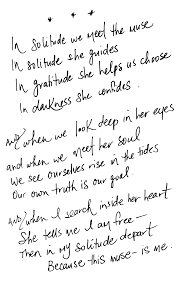 * * *
In solitude we meet the muse
In solitude she guides
In gratitude she helps us choose
In darkness she confides.
And/ when we look deep in her eyes
and when we meet her soul
We see ourselves rise in the tides
Our own truth is our goal.
And/ when I search inside her heart
She tells me I am free—
Then in my solitude depart
Because this muse— is me.